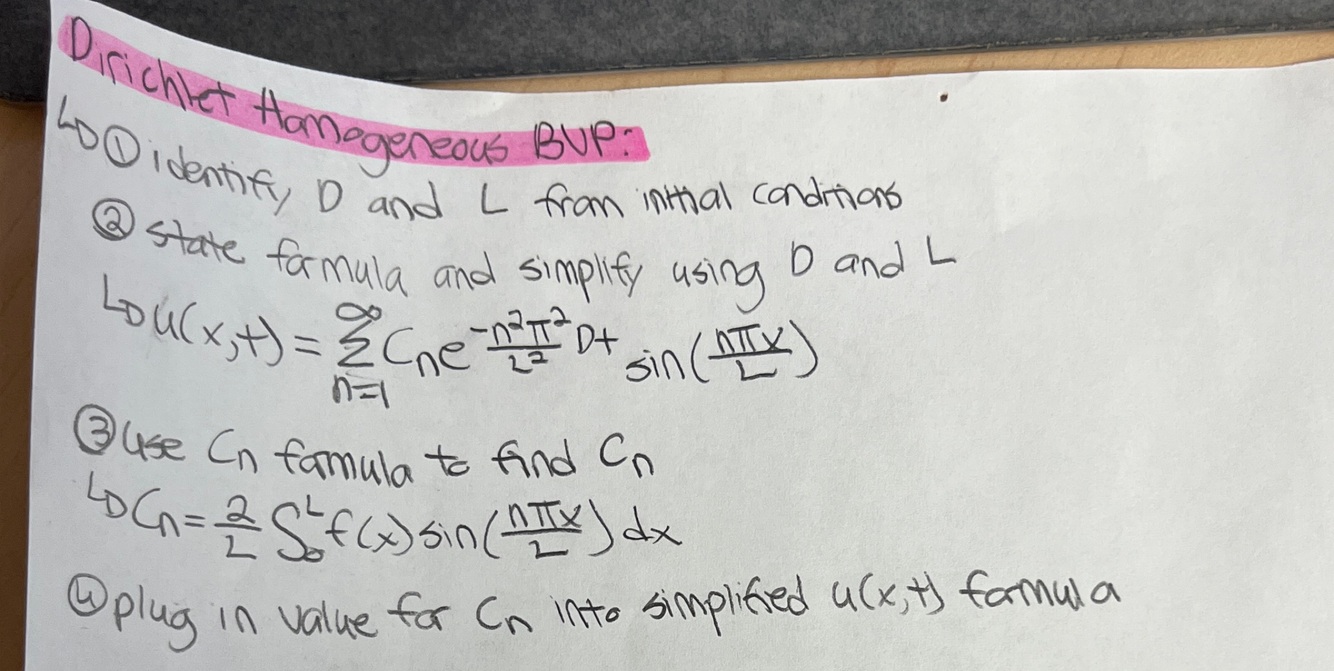 Dirichlet Homogeneous BVP:
↳ ① identify D and L from initial conditions
② state formula and simplify using D and L
↳ u(x,t) = ∑_{n=1}^{∞} C_n e^{-\frac{n²π²}{L²} Dt} sin(\frac{nπx}{L})
③ use C_n formula to find C_n
↳ C_n = \frac{2}{L} ∫_0^L f(x) sin(\frac{nπx}{L}) dx
④ plug in value for C_n into simplified u(x,t) formula